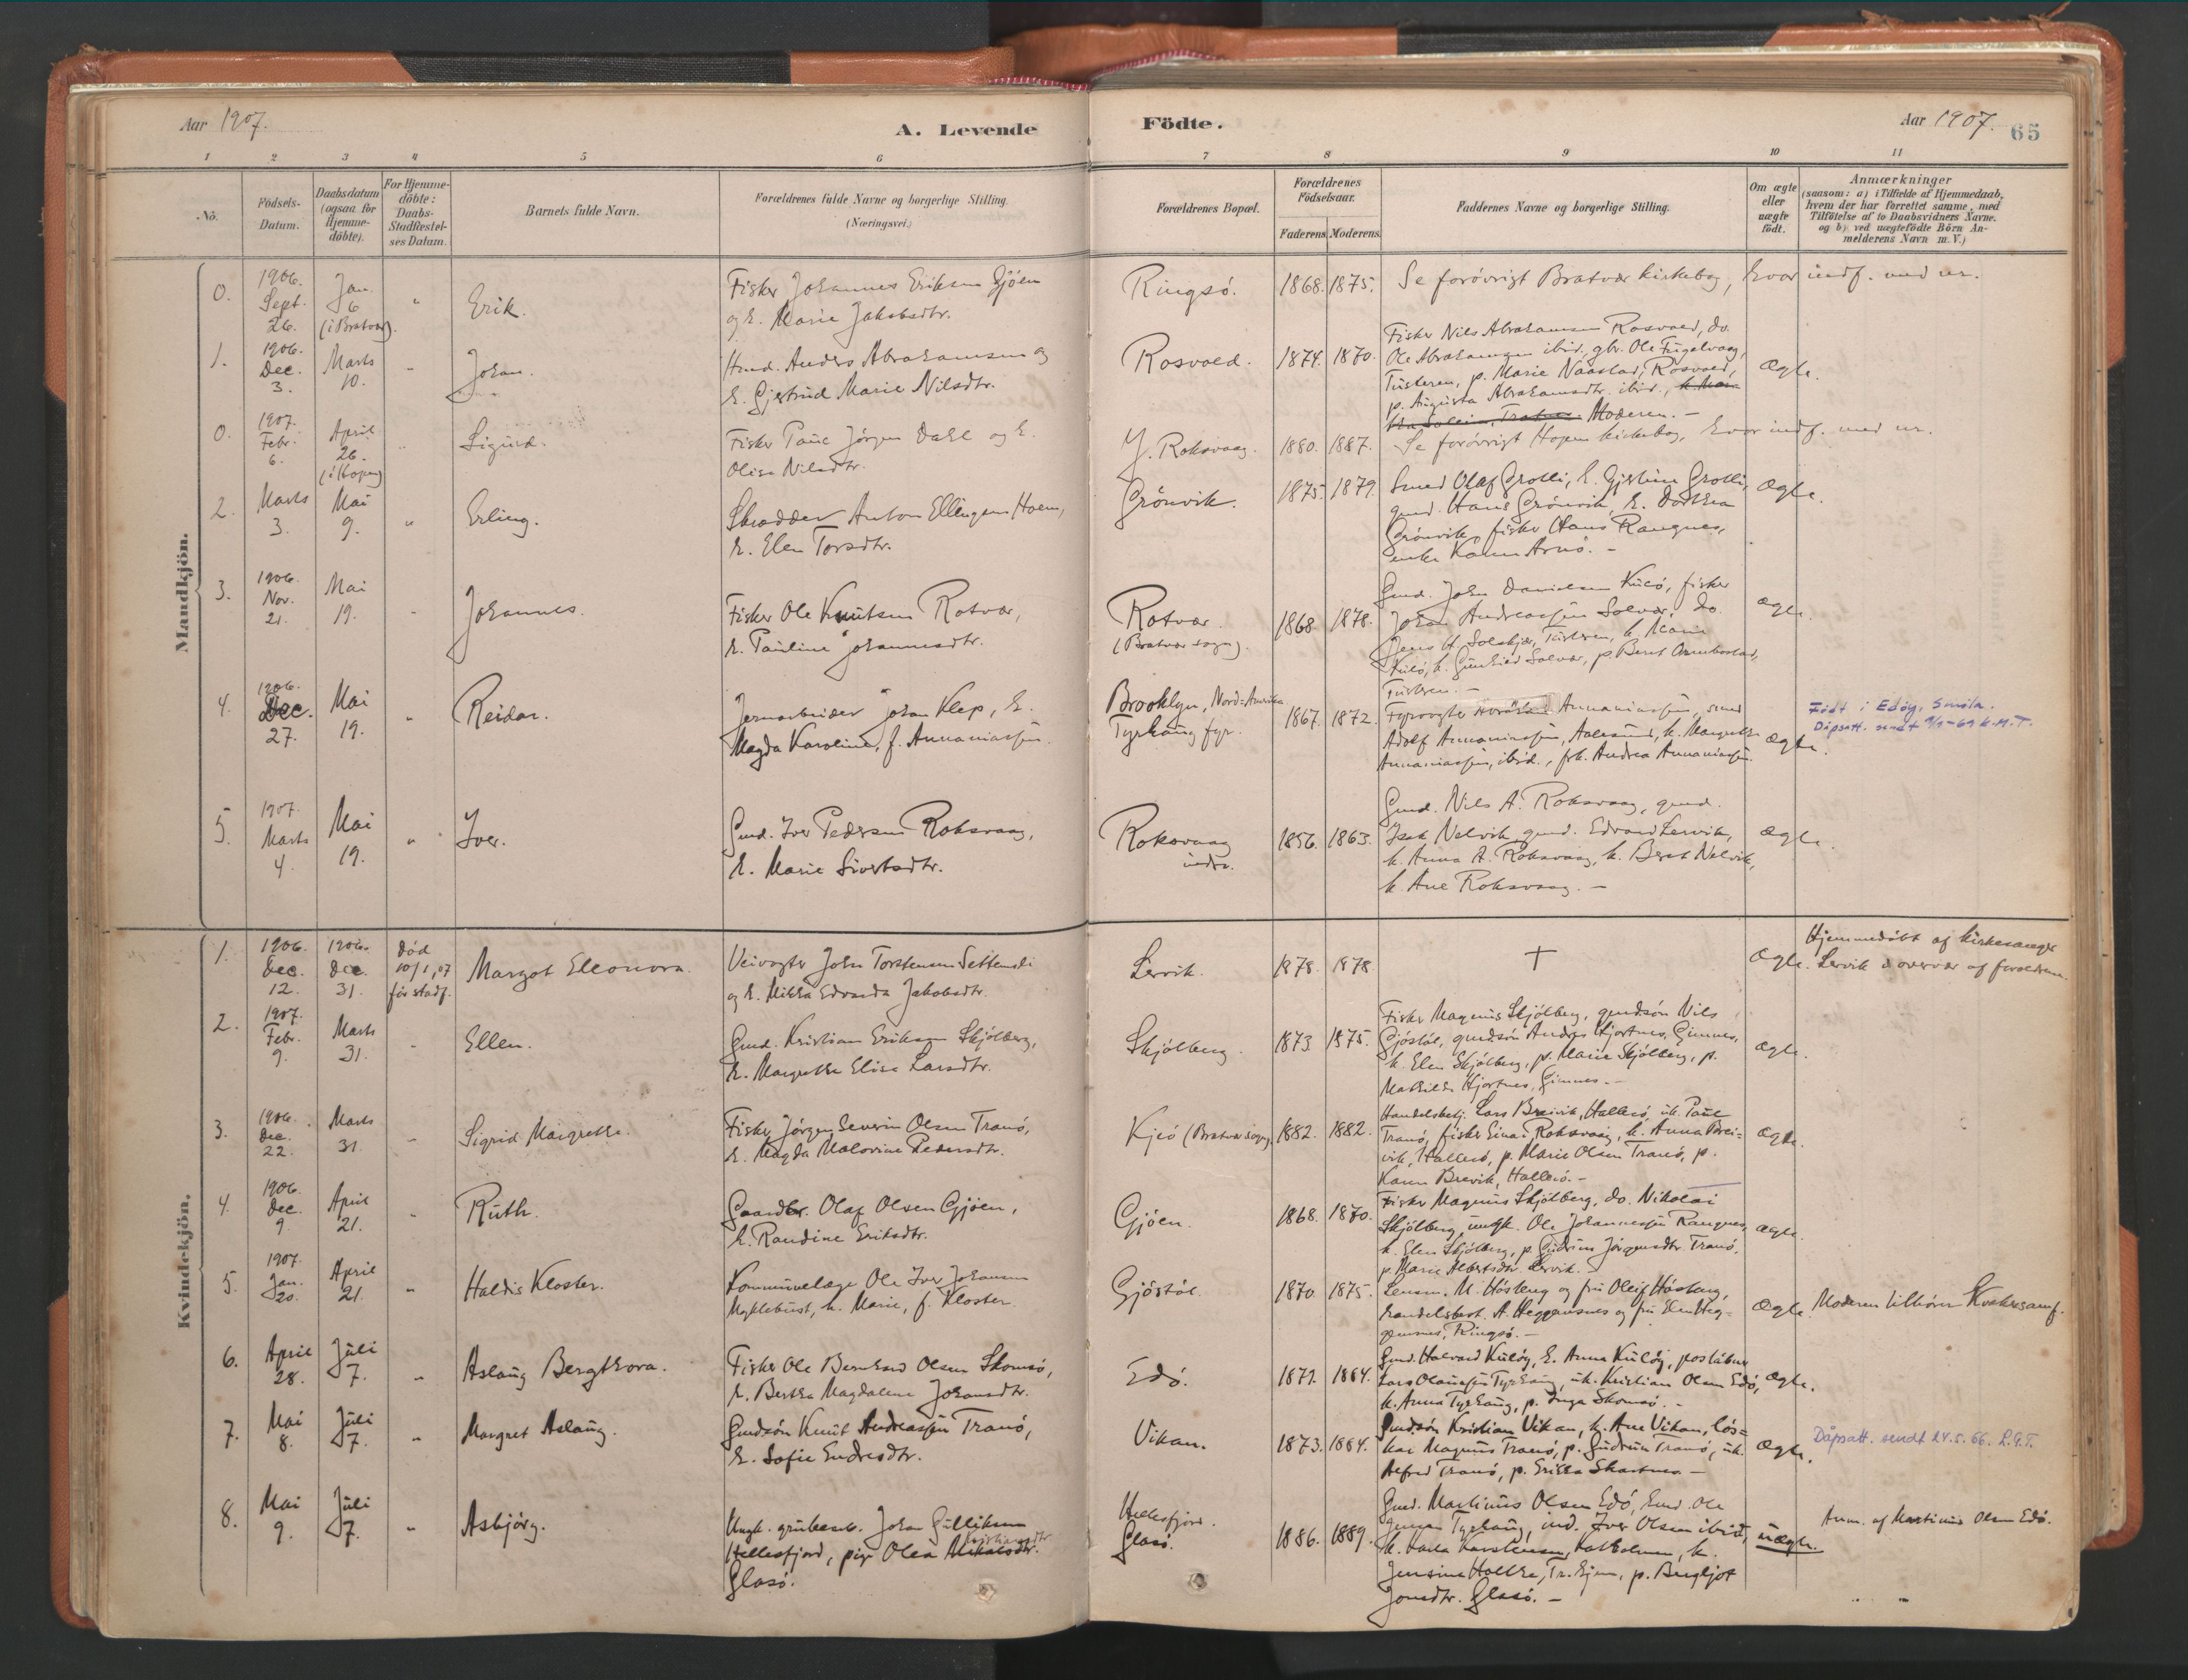 Aar 1907.
A. Levende
Födte.
Aar 1907. 65
1 2 3 4 5 6 7 8 9 10 11
No.
Födsels-
Datum.
Daabsdatum
(ogsaa for
Hjemme-
döbte).
For Hjemme-
döbte:
Daabs-
Stadfæstel-
ses Datum.
Barnets fulde Navn.
Forældrenes fulde Navne og borgerlige Stilling.
(Næringsvei.)
Forældrenes Bopæl.
Forældrenes
Födselsaar.
Faderens. Moderens.
Faddernes Navne og borgerlige Stilling.
Om ægte
eller
uægte
födt.
Anmærkninger
(saasom: a) i Tilfælde af Hjemmedaab,
hvem der har forrettet samme, med
Tilföielse af to Daabsvidners Navne.
og b) ved uægtefödte Börn An-
melderens Navn m.V.)
Mandkjön.
0.
1906.
Sept.
26.
Jan.
6
(i Bratvær).
"
Erik.
Fisker Johannes Eriksen Gjöen
og h. Marie Jakobsdtr.
Ringsö.
1868. 1875.
Se forövrigt Bratvær kirkebog, hvor indf. med nr.
1.
1906.
Dec.
3.
Marts
10.
"
Johan.
Anders Abrahamsen og
h. Gjertrud Marie Nilsdtr.
Rosvold.
1874. 1870.
Fisker Nils Abrahamsen Rosvold, do.
Ole Abrahamsen ibid, gbr. Ole Fugelvaag,
Tusteren, p. Marie Naastad, Rosvold,
p. Augusta Abrahamsdtr. ibid.,
Moderen. -
Ægte.
0.
1907.
Febr.
6.
April
26.
(i Hopen)
"
Sigurd.
Fisker Paul Jörgen Dahl og h.
Olise Nilsdtr.
Y. Roksvaag.
1880. 1887.
Se forövrigt Hopen kirkebog, hvor indf. med nr.
2.
Marts
3.
Mai
9.
"
Erling.
Skrædder Anton Ellingsen Hoem,
h. Elen Torsdtr.
Grönvik.
1875. 1879.
Smed Olaf Grolli, h. Gjertine Grolli,
gmd. Hans Grönvik, h. Dorthea
Grönvik, fisker Hans Rangnes,
enke Karen Arnö. -
Ægte.
3.
1906.
Nov.
21.
Mai
19.
"
Johannes.
Fisker Ole Knutsen Rotvær,
h. Pauline Johannesdtr.
Rotvær.
(Bratvær sogn).
1868 1878.
Gmd. John Danielsen Kulö, fisker
Johan Andreassen Solvær, do.
Jens H. Solskjær, Tusteren, k. Marie
Kulö, k. Gunhild Solvær, p. Berit
Tusteren. -
ægte.
4.
1906.
Dec.
27.
Mai
19.
"
Reidar.
Jernarbeider Johan Klep, h.
Magda Karoline, f. Annaniassen.
Brooklyn, Nord-Amerika
Tyrhaug fyr.
1867. 1872.
Fyrvogter Annaniassen, smed
Adolf Annaniassen, Aalesund, k. Margrethe
Annaniassen, ibid., frk. Andrea Annaniassen.
ægte.
Født i Edøy, Smøla.
Dåpsatt. sendt 9/5-69 K.M.T.
5.
1907.
Marts
4.
Mai
19.
"
Iver.
Gmd. Iver Pedersen Roksvaag,
h. Marie Sivertsdtr.
Roksvaag
indre.
1856. 1863.
Gmd. Nils A. Roksvaag, gmd.
Isak Nelvik, gmd. Edvard Lervik,
k. Anna A. Roksvaag, k. Beret Nelvik,
k. Ane Roksvaag. -
Ægte.
Kvindekjön.
1.
1906.
Dec.
12.
1906.
Dec.
31.
Død
10/1,07
för stadf.
Margot Eleonora.
Veivogter John Torstensen Settemsli
og h. Mikka Edvarda Jakobsdtr.
Lervik.
1878. 1878
†
Ægte.
Hjemmedöbt af kirkesanger
Lervik i overvær af forældrene.
2.
1907.
Febr.
9.
Marts
31.
"
Ellen.
Gmd. Kristian Eriksen Skjölberg,
h. Margrethe Elise Larsdtr.
Skjölberg.
1873. 1875.
Fisker Magnus Skjölberg, gmdsön Nils
Gjöstöl, gmdsön Anders Hjortnes, Gimnes,
k. Elen Skjölberg, p. Marie Skjölberg, p.
Mathilde Hjortnes, Gimnes. -
Ægte.
3.
1906.
Dec.
22.
Marts
31.
"
Sigrid Margrethe.
Fisker Jörgen Severin Olsen Tranö,
h. Magda Malovine Pedersdtr.
Kjeö (Bratvær sogn)
1882. 1882.
Handelsbetj. Lars Breivik, Hallesö, uk. Paul
Tranö, fisker Einar Roksvaag, k. Anna Brei-
vik, Hallesö, p. Marie Olsen Tranö, p.
Karen Brevik, Hallesö. -
Ægte.
4.
1906.
Dec.
9.
April
21.
"
Ruth.
Gaardbr. Olaf Olsen Gjöen,
h. Randine Eriksdtr.
Gjöen.
1868. 1870.
Fisker Magnus Skjölberg, do. Nikolai
Skjölberg, ungk. Ole Johannessen Rangnes,
k. Elen Skjölberg, p. Gudrun Jörgensdtr. Tranö,
p. Marie Albertsdtr. Lervik. -
Ægte.
5.
1907.
Jan.
20.
April
21.
"
Haldis Kloster.
Kommunelæge Ole Iver Johansen
Myklebust, h. Marie, f. Kloster.
Gjöstöl.
1870. 1875.
Lensm. M. Hösteng og fru Oleif Hösteng,
handelsbest. A. Heggemsnes og fru Elen Heg-
gemsnes, Ringsö. -
Ægte.
Moderen tilhörer Kvækersamf.
6.
April
28.
Juli
7.
"
Aslaug Bergthora.
Fisker Ole Bernhard Olsen Skomsö,
h. Bertha Magdalene Johansdtr.
Edö.
1871. 1864.
Gmd. Halvard Kulöy, h. Anna Kulöy, postaabner
Lars Olaussen Tyrhaug, uk. Kristian Olsen Edö,
k. Anna Tyrhaug, p. Inga Skomsö. -
Ægte.
7.
Mai
8.
Juli
7.
"
Margret Aslaug.
Gmdsön Knut Andreassen Tranö,
h. Sofie Endresdtr.
Vikan.
1873. 1884.
Gmdsön Kristian Vikan, k. Ane Vikan, lös-
kar Magnus Tranö, p. Gudrun Tranö, uk.
Alfred Tranö, p. Erikka Skartnes -
Ægte.
Dåpsatt. sendt 24.5.66. L.G.T.
8.
Mai
9.
Juli
7.
"
Asbjörg.
Ungk. grubearb. Johan Gulliksen
Hellesfjord, pige Olea Kristiansdtr.
Glasö.
Hellesfjord.
Glasö.
1886. 1889.
Gmd. Martinus Olsen Edö, Emd. Ole
Jensen Tyrhaug, ind. Iver Olsen ibid,
k. Karla
Jensine Holthe, p. Bergljot
Jonsdtr. Glasö. -
uægte.
Anm. af Martinus Olsen Edö.